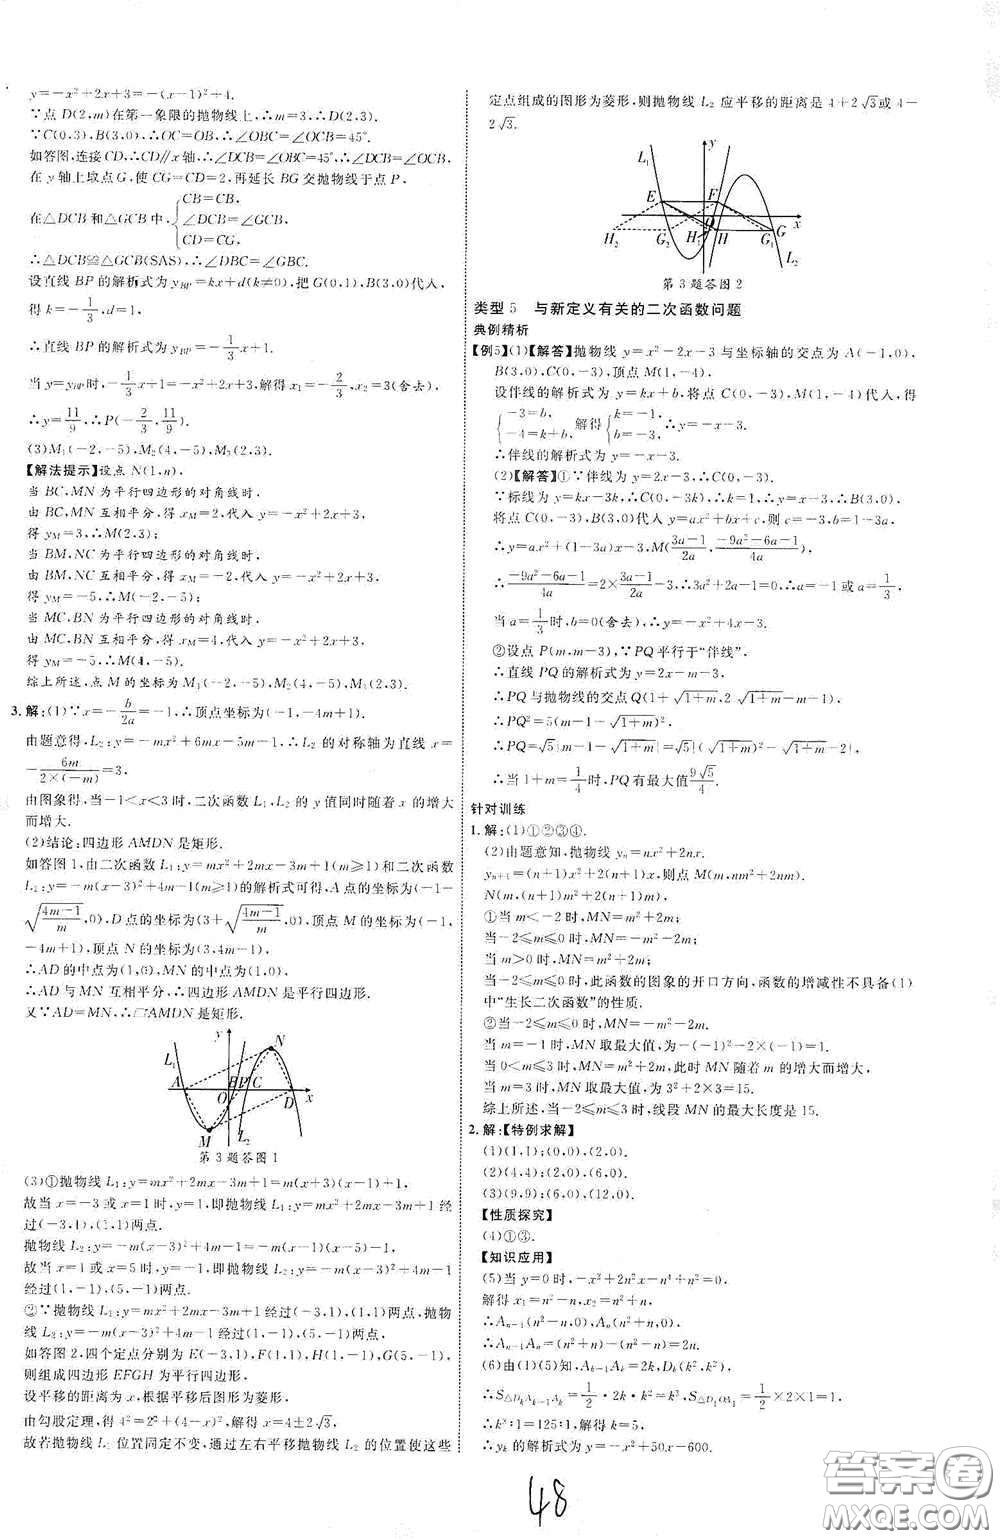 y=-x²+2x+3=-(x-1)²+4.
∵点 D(2,m)在第一象限的抛物线上,∴m=3,∴D(2,3).
∵C(0,3),B(3,0),∴OC=OB,∴∠OBC=∠OCB=45°.
如答图,连接CD,∴CD∥x轴,∴∠DCB=∠OBC=45°,∴∠DCB=∠OCB.
在 y 轴上取点 G,使 CG=CD=2,再延长 BG 交抛物线于点 P,
在△DCB 和△GCB 中, { CB=CB, ∠DCB=∠GCB, CD=CG,
∴△DCB≌△GCB(SAS),∴∠DBC=∠GBC.
设直线 BP 的解析式为 y_BP=kx+d(k≠0),把 G(0,1),B(3,0)代入,
得 k=-1/3,d=1,
∴直线 BP 的解析式为 y_BP=-1/3x+1.
当 y=y_BP时,-1/3x+1=-x²+2x+3,解得 x₁=-2/3,x₂=3(舍去),
∴y=11/9,∴P(-2/3,11/9).
(3)M₁(-2,-5),M₂(4,-5),M₃(2,3).
【解法提示】设点 N(1,n),
当 BC,MN为平行四边形的对角线时,
由 BC,MN 互相平分,得 x_M=2,代入 y=-x²+2x+3,
得 y_M=3,∴M(2,3);
当 BM,NC 为平行四边形的对角线时,
由 BM,NC 互相平分,得 x_M=-2,代入 y=-x²+2x+3,
得 y_M=-5,∴M(-2,-5);
当 MC,BN为平行四边形的对角线时,
由 MC,BN 互相平分,得 x_M=4,代入 y=-x²+2x+3,
得 y_M=-5,∴M(4,-5).
综上所述,点 M 的坐标为 M₁(-2,-5),M₂(4,-5),M₃(2,3).
3.解:(1)∵x=-b/2a=-1,∴顶点坐标为(-1,-4m+1).
由题意得,L₂:y=-mx²+6mx-5m-1,∴L₂的对称轴为直线 x=
-6m/(2×(-m))=3,
由图象得,当-1<x<3时,二次函数 L₁,L₂的 y 值同时随着 x 的增大
而增大.
(2)结论:四边形AMDN是矩形.
如答图 1,由二次函数 L₁:y=mx²+2mx-3m+1(m≥1)和二次函数
L₂:y=-m(x-3)²+4m-1(m≥1)的解析式可得,A点的坐标为(-1-
√((4m-1)/m),0),D 点的坐标为(3+√((4m-1)/m),0),顶点 M 的坐标为(-1,
-4m+1),顶点 N 的坐标为(3,4m-1),
∴AD的中点为(1,0),MN的中点为(1,0).
∴AD与MN互相平分,∴四边形AMDN是平行四边形.
又∵AD=MN,∴▱AMDN是矩形.
y
N
L₁
A
B
P
C
O
D
x
M
L₂
第 3 题答图 1
(3)①抛物线 L₁:y=mx²+2mx-3m+1=m(x+3)(x-1)+1,
故当 x=-3 或 x=1 时,y=1,即抛物线 L₁:y=mx²+2mx-3m+1 经
过(-3,1),(1,1)两点.
抛物线 L₂:y=-m(x-3)²+4m-1=-m(x-1)(x-5)-1,
故当 x=1 或 x=5 时,y=-1,即抛物线 L₂:y=-m(x-3)²+4m-1
经过(1,-1),(5,-1)两点.
②∵抛物线 L₁:y=mx²+2mx-3m+1经过(-3,1),(1,1)两点,抛物
线 L₂:y=-m(x-3)²+4m-1经过(1,-1),(5,-1)两点,
如答图 2,四个定点分别为 E(-3,1),F(1,1),H(1,-1),G(5,-1),
则组成四边形 EFGH 为平行四边形.
设平移的距离为 x,根据平移后图形为菱形,
由勾股定理,得 4²=2²+(4-x)²,解得 x=4±2√3.
故若抛物线 L₁ 位置固定不变,通过左右平移抛物线 L₂ 的位置使这些
定点组成的图形为菱形,则抛物线 L₂ 应平移的距离是 4+2√3或4-
2√3.
L₁
y
E
F
O
x
H₂
G₂
H₁
H
G₁
G
L₂
第 3 题答图 2
类型 5 与新定义有关的二次函数问题
典例精析
【例5】(1)【解答】抛物线 y=x²-2x-3与坐标轴的交点为 A(-1,0),
B(3,0),C(0,-3),顶点 M(1,-4),
设伴线的解析式为 y=kx+b,将点 C(0,-3),M(1,-4)代入,得
{ -3=b, -4=k+b, 解得{ k=-1, b=-3, ∴y=-x-3,
∴伴线的解析式为 y=-x-3.
(2)【解答】①∵伴线为 y=2x-3,∴C(0,-3).
∵标线为 y=kx-3k,∴C(0,-3k),∴k=1,∴y=x-3.
将点 C(0,-3),B(3,0)代入 y=ax²+bx+c,则 c=-3,b=1-3a,
∴y=ax²+(1-3a)x-3,M((3a-1)/2a,(-9a²-6a-1)/4a)
∴(-9a²-6a-1)/4a=2×(3a-1)/2a-3,∴3a²+2a-1=0,∴a=-1或 a=1/3,
当 a=1/3时,b=0(舍去),∴y=-x²+4x-3.
②设点 P(m,m-3),∵PQ平行于“伴线”,
∴直线 PQ 的解析式为 y=2x-m-3,
∴PQ 与抛物线的交点 Q(1+√(1+m),2√(1+m)-m-1),
∴PQ²=5(m-1-√(1+m))²,
∴PQ=√5|m-1-√(1+m)|=√5|(√(1+m))²-√(1+m)-2|,
∴当 1+m=1/4时,PQ有最大值9√5/4.
针对训练
1.解:(1)①②③④.
(2)由题意知,抛物线 yₙ=nx²+2nx,
yₙ₊₁=(n+1)x²+2(n+1)x,则点 M(m,nm²+2nm),
N(m,(n+1)m²+2(n+1)m),
①当 m<-2时,MN=m²+2m;
当-2≤m≤0时,MN=-m²-2m;
当 m>0时,MN=m²+2m,
当-2≤m≤0时,此函数的图象的开口方向,函数的增减性不具备(1)
中“生长二次函数”的性质.
②当-2≤m≤0时,MN=-m²-2m.
当 m=-1时,MN取最大值,为-(-1)²-2×(-1)=1;
当 0<m≤3时,MN=m²+2m,此时 MN 随着 m 的增大而增大,
当 m=3时,MN取最大值,为 3²+2×3=15.
综上所述,当-2≤m≤3时,线段 MN 的最大长度是 15.
2.解:【特例求解】
(1)(1,1);(0,0),(2,0).
(2)(4,4);(2,0),(6,0).
(3)(9,9);(6,0),(12,0).
【性质探究】
(4)①③.
【知识应用】
(5)当 y=0时,-x²+2n²x-n⁴+n²=0,
解得 x₁=n²-n,x₂=n²+n,
∴Aₙ₋₁(n²-n,0),Aₙ(n²+n,0),
∴Aₙ₋₁Aₙ=(n²+n)-(n²-n)=2n.
(6)由(1)(5)知,Aₖ₋₁Aₖ=2k,Dₖ(k²,k²),
∴S△DₖAₖ₋₁Aₖ=1/2·2k·k²=k³,S△D₁OA₁=1/2×2×1=1,
∴k³:1=125:1,解得 k=5,
∴yₖ的解析式为 y=-x²+50x-600.
48
答案卷
MXQE.COM